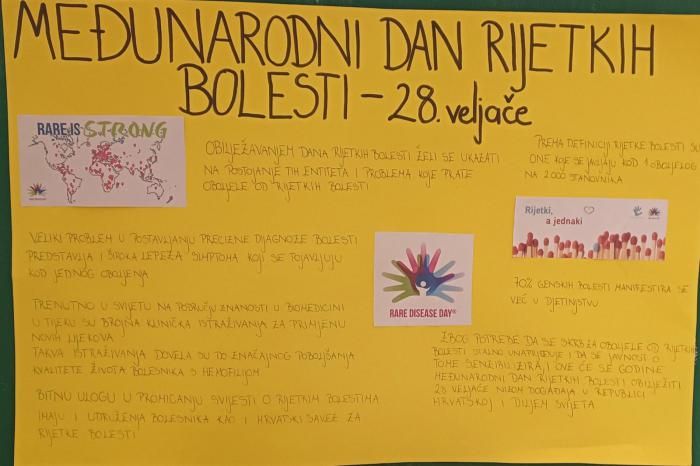 MEĐUNARODNI DAN RIJETKIH
BOLESTI – 28. veljače
RARE IS STRONG
OBILJEŽAVANJEM DANA RIJETKIH BOLESTI ŽELI SE UKAZATI
NA POSTOJANJE TIH ENTITETA I PROBLEMA KOJE PRATE
OBOLJELE OD RIJETKIH BOLESTI
PREMA DEFINICIJI RIJETKE BOLESTI SU
ONE KOJE SE JAVLJAJU KOD 1 OBOLJELOG
NA 2000 STANOVNIKA
Rijetki,
a jednaki
VELIKI PROBLEM U POSTAVLJANJU PRECIZNE DIJAGNOZE BOLESTI
PREDSTAVLJA I "ŠIROKA LEPEZA" SIMPTOMA KOJI SE POJAVLJUJU
KOD JEDNOG OBOLJENJA
RARE DISEASE DAY®
70% GENSKIH BOLESTI MANIFESTIRA SE
VEĆ U DJETINJSTVU
TRENUTNO U SVIJETU NA PODRUČJU ZNANOSTI U BIOMEDICINI
U TIJEKU SU BROJNA KLINIČKA ISTRAŽIVANJA ZA PRIMJENU
NOVIH LIJEKOVA
TAKVA ISTRAŽIVANJA DOVELA SU DO ZNAČAJNOG POBOLJŠANJA
KVALITETE ŽIVOTA BOLESNIKA S HEMOFILIJOM
BITNU ULOGU U PROMICANJU SVIJESTI O RIJETKIM BOLESTIMA
IMAJU I UDRUŽENJA BOLESNIKA KAO I HRVATSKI SAVEZ ZA
RIJETKE BOLESTI
ZBOG POTREBE DA SE SKRB ZA OBOLJELE OD RIJETKIH
BOLESTI STALNO UNAPRJEĐUJE I DA SE JAVNOST O
TOME SENZIBILIZIRA, I OVE ĆE SE GODINE
MEĐUNARODNI DAN RIJETKIH BOLESTI OBILJEŽITI
28 VELJAČE NIZOM DOGAĐAJA U REPUBLICI
HRVATSKOJ I DILJEM SVIJETA